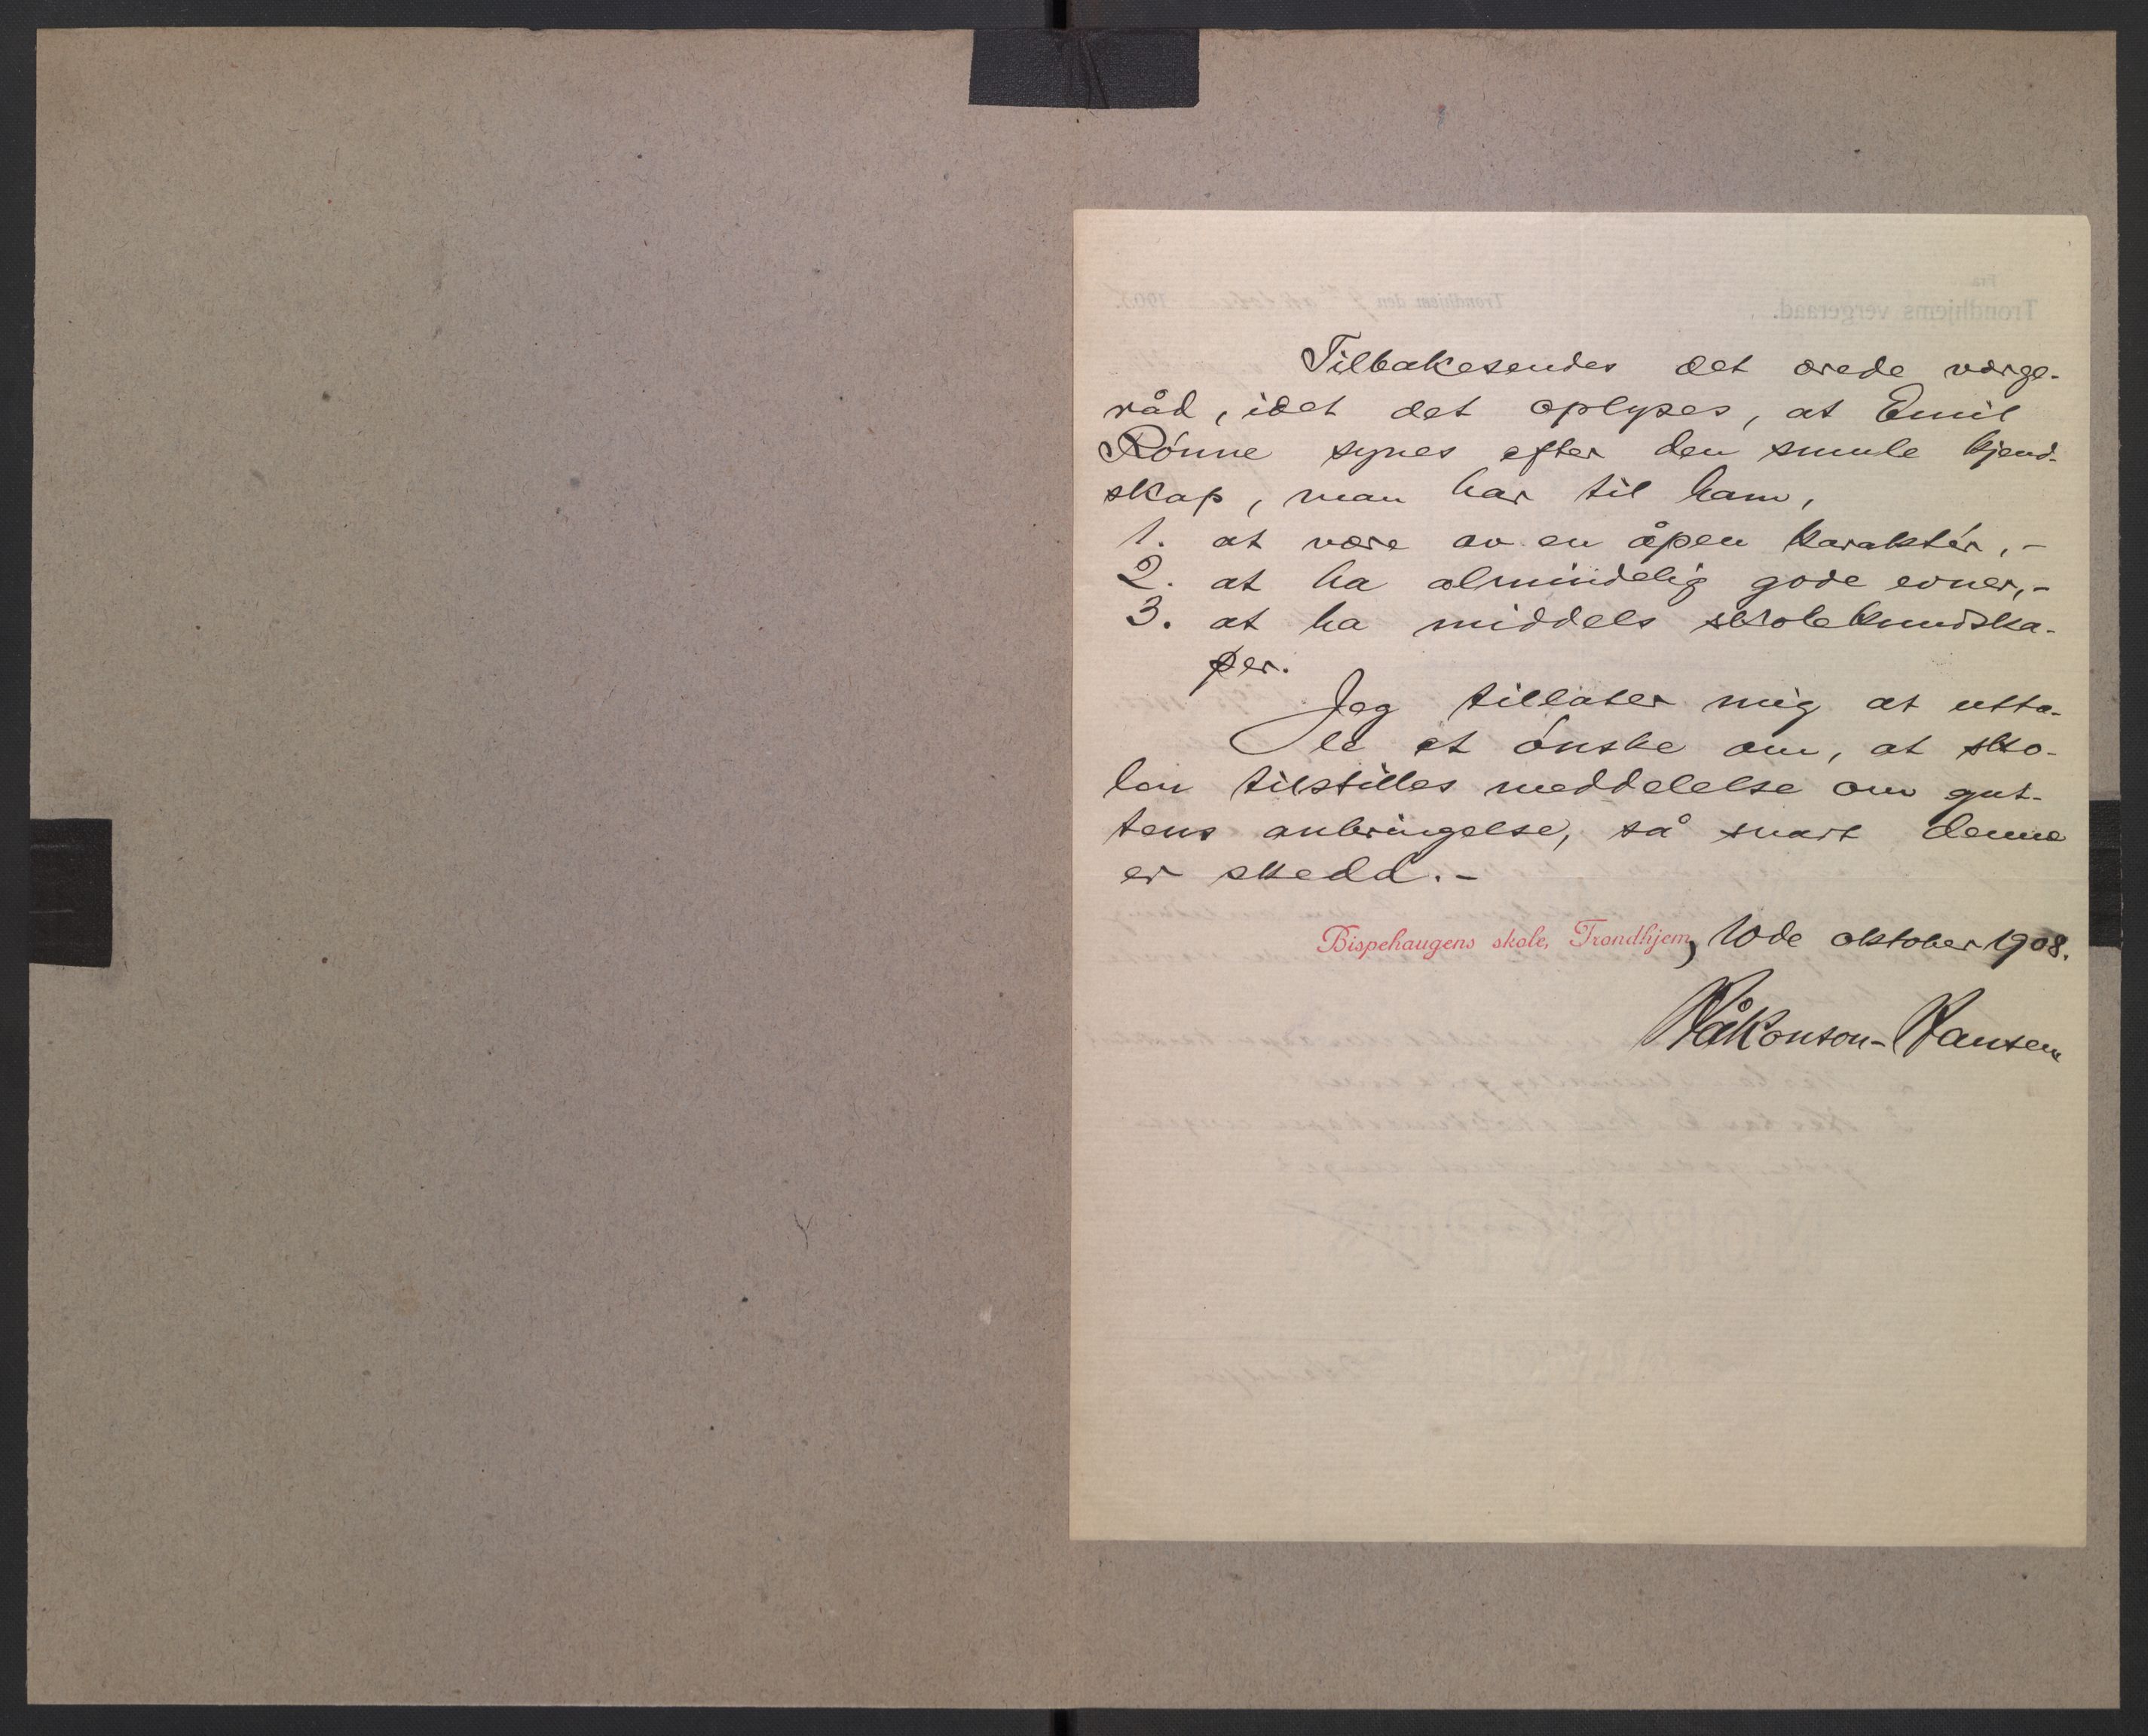 Tilbakesendes det ærede værge-
råd, idet det oplyses, at Emil
Rónne synes efter den smule kjend-
skap, man har til ham,
1. at være av en åpen karaktér, -
2. at ha almindelig gode evner, -
3. at ha middels skolekundska-
per.
Jeg tillater mig at utta-
le et ónske om, at sko-
len tilstilles meddelelse om gut-
tens anbringelse, så snart denne
er skedd. -
Bispehaugens skole, Trondhjem, 10de oktober 1908.
Håkonson-Hansen